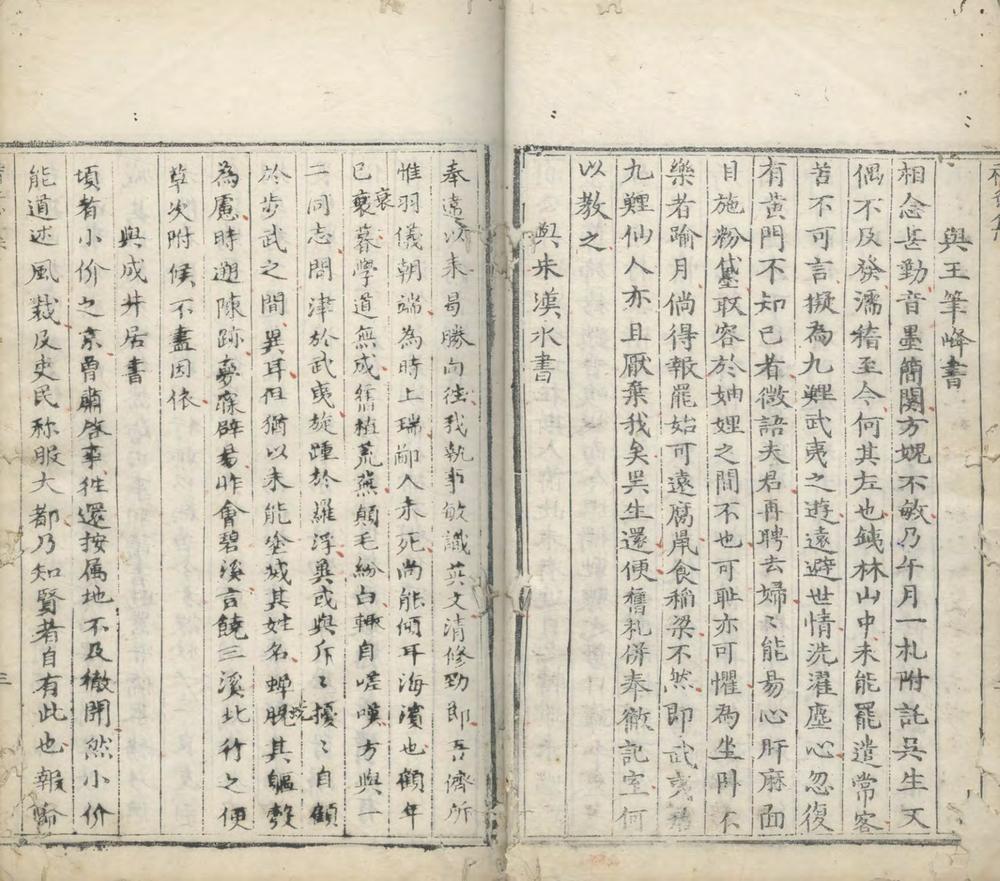 與王筆峰書
相念甚勤音墨簡闊方媿不敏乃午月一札附託吳生又
偶不及發濡稽至今何其左也鋨林山中未能罷遣常客
苦不可言擬為九鯉武夷之遊遠避世情洗濯塵心忽復
有黃門不知已者徵語夫君再聘去婦縱能易心肝麻面
目施粉黛取容於妯娌之間不也可耻亦可懼為坐卧不
樂者踰月倘得報罷始可遠腐鼠食稻梁不然即武夷
九鯉仙人亦且厭棄我矣吳生還便舊札併奉徹記室何
以教之
與朱漢水書
奉違以來曷勝向往我執事敏識英文清修勁節吾儕所
惟羽儀朝端為時上瑞鄙人未死尚能傾耳海濱也顧年
已衰暮學道無成舊植荒蕪顛毛紛白輒自嗟嘆方與一
衰
二同志問津於武夷旋踵於羅浮冀或與斤〻擾〻自顧
於步武之間異耳但猶以未能塗滅其姓名蟬脫其軀殼
蛻
為慮時遡陳跡夢寐辟昜昨會碧溪言饒三溪北行之便
草次附候不盡因依
與成井居書
頃者小价之京曾肅啓事往還按属地不及徹聞然小价
能道述風裁及吏民称服大都乃知賢者自有此也報命